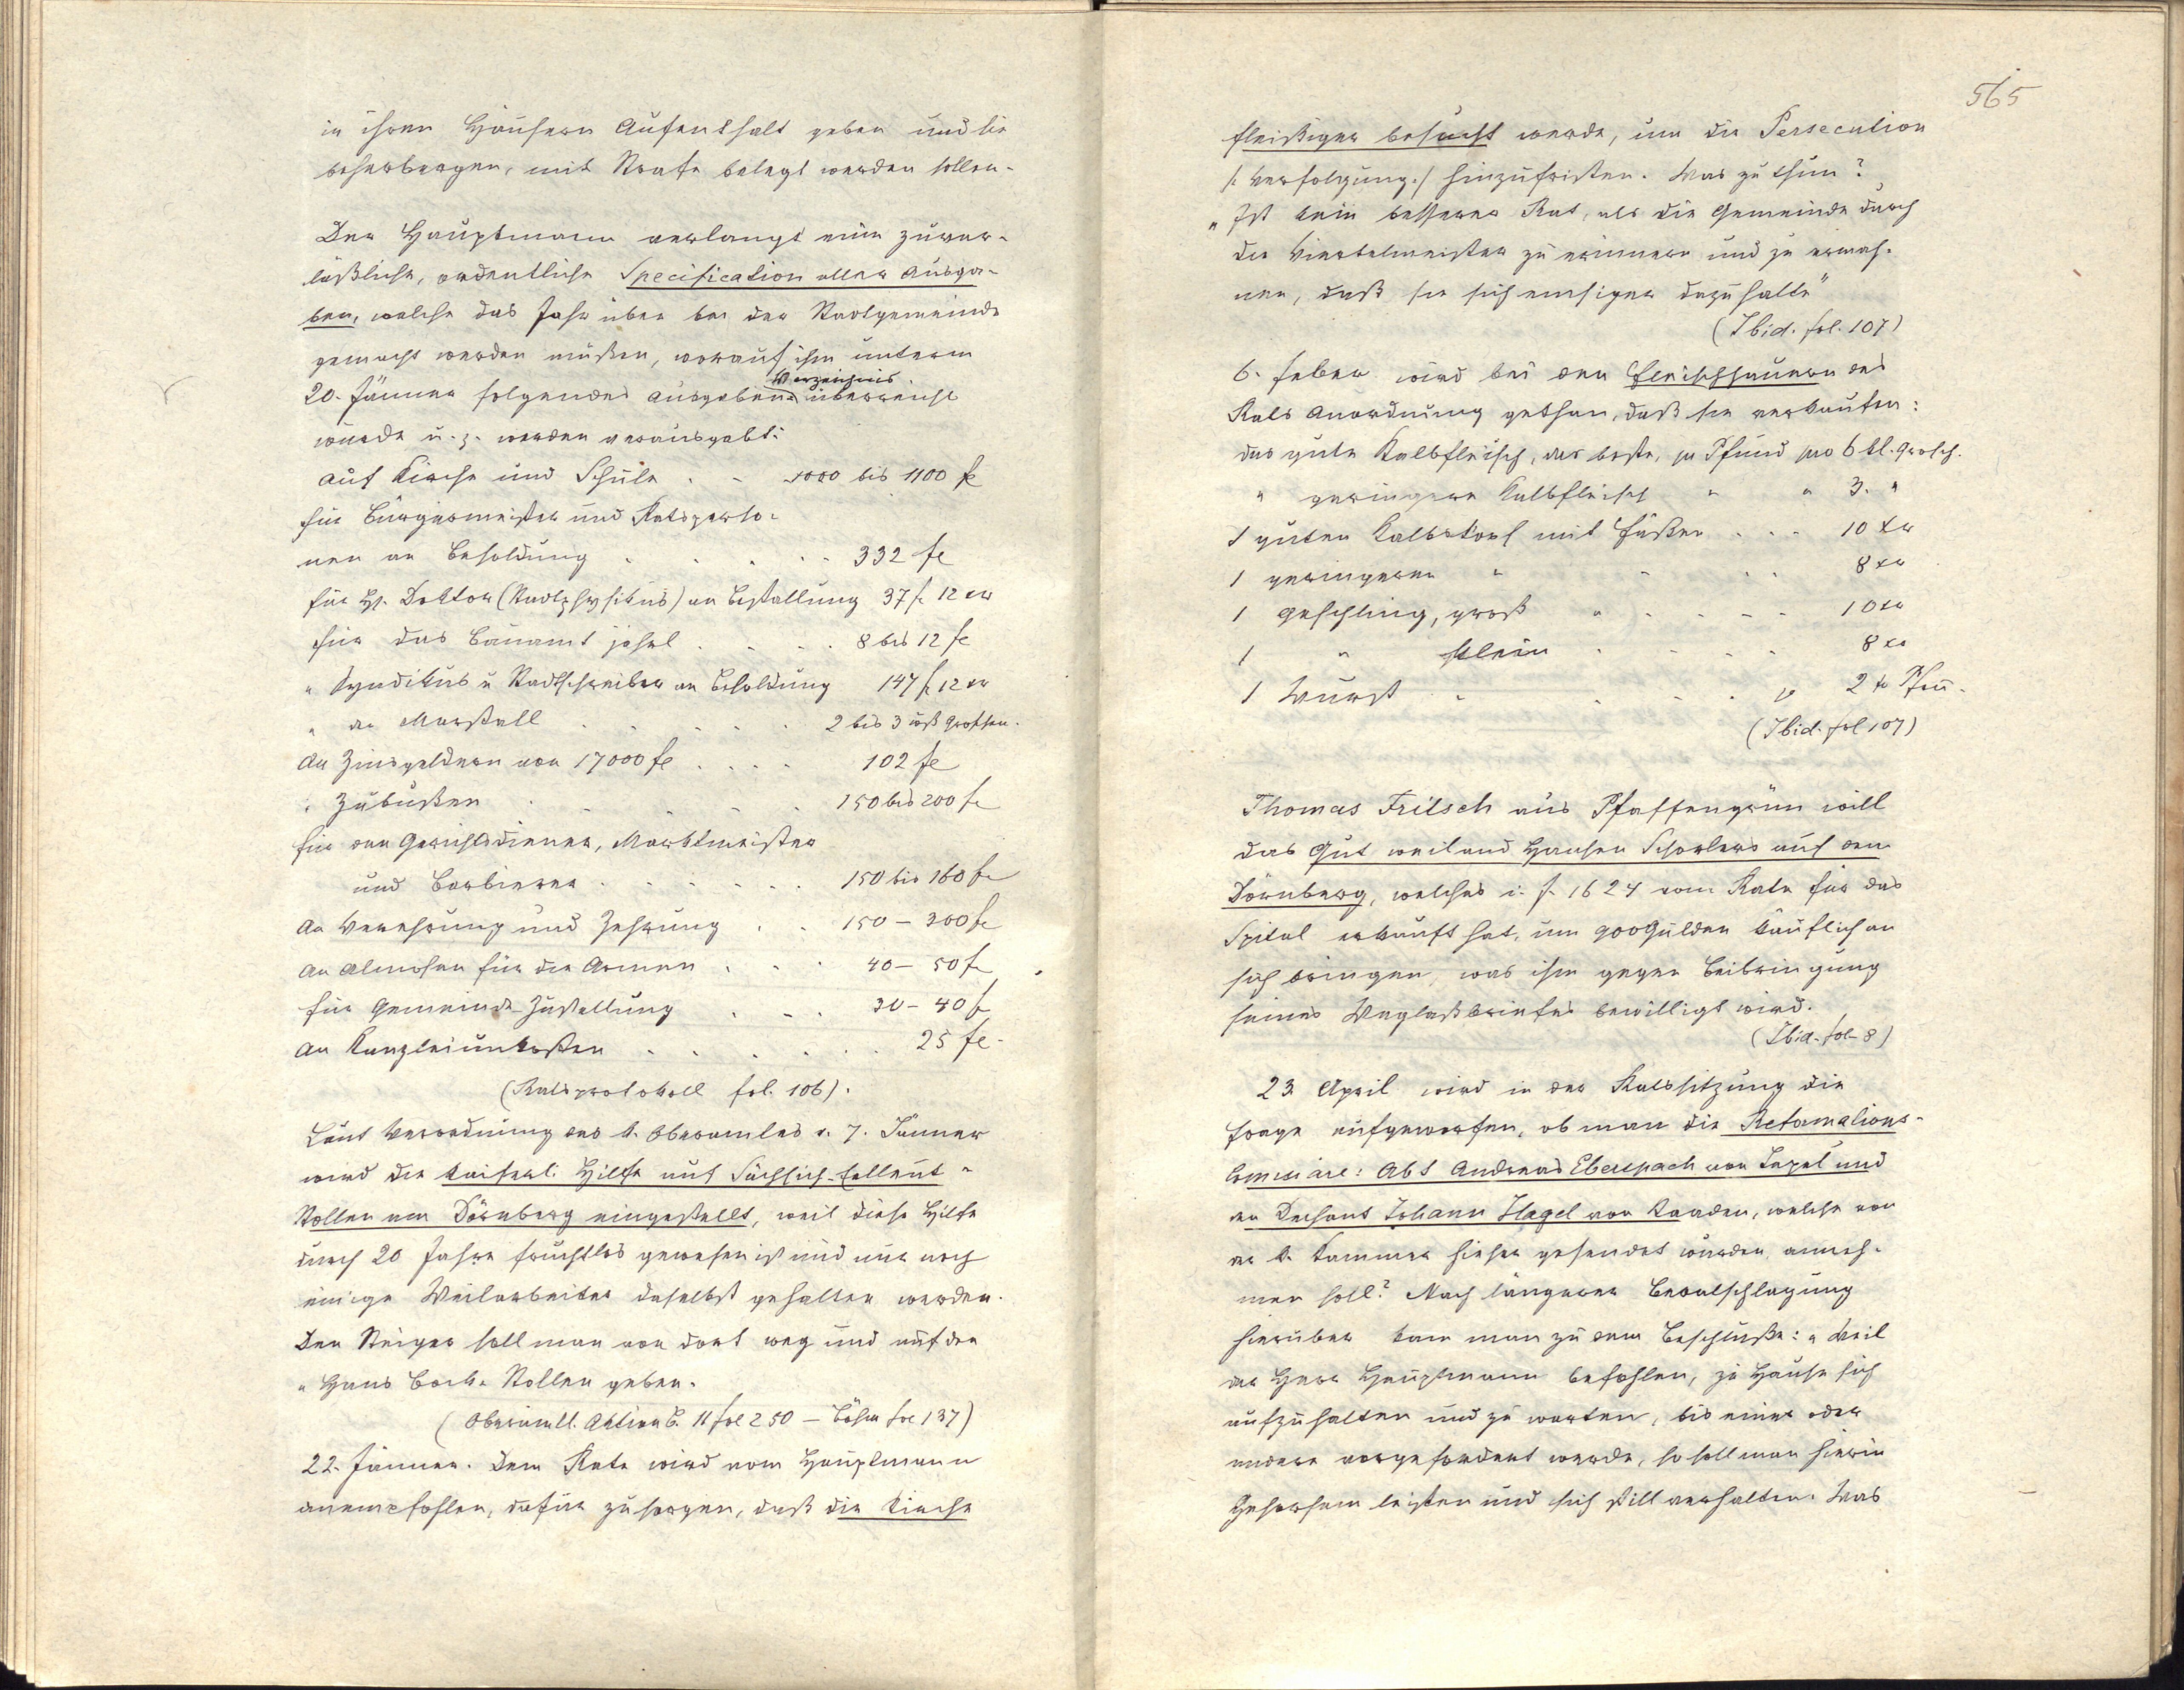 in ihren Häusern Aufenthalt geben und sie
beherbergen, mit Strafe belegt werden sollen.
Der Hauptmann verlangt eine zuver-
läßliche, ordentliche Specification aller Ausga-
ben, welche das Jahr über bei der Stadtgemeinde
gemacht werden müßen, worauf ihm unterm
20. Jänner folgendes Ausgaben-Verzeichnis überreicht
wurde u. z. werden verausgabt:
auf Kirche und Schule . . 1000 bis 1100 fl
für Bürgermeister und Ratsperso-
nen an Besoldung . . . . 332 fl
für H. Doktor (Stadtphysikus) an Bestallung 37 fl 12 xr
für das Bauamt jährl . . . . 8 bis 12 fl
" Syndikus u Stadtschreiber an Besoldung 147 fl 12 xr
" den Marstall . . . . 2 bis 3 wß Groschen.
An Zinsgeldern von 17000 fl . . . . 102 fl
" Zubußen . . . . . 150 bis 200 fl
für den Gerichtsdiener, Marktmeister
und Barbierer . . . . . 150 bis 160 fl
An Verehrung und Zehrung . . 150 – 300 fl
An Almosen für die Armen . . . 40 – 50 fl
für Gemeinde-Zustellung . . . 30 – 40 fl
An Kanzleiunkosten . . . . . . 25 fl.
(Ratsprotokoll fol. 106).
Laut Verordnung des k. Oberamtes v. 7. Jänner
wird die kaiserl. Hilfe auf Sächsisch-
Stollen am Dörnberg eingestellt, weil diese Hilfe
durch 20 Jahre fruchtlos gewesen ist und nur noch
einige Weilarbeiter daselbst gehalten werden.
Den Steiger soll man von dort weg und auf den
"Hans Bock" Stollen geben.
(Oberamtl. Aktien B. 11 fol 250 – Böhm fol 137)
22. Jänner. Dem Rate wird vom Hauptmann
anempfohlen, dafür zu sorgen, daß die Kirche
565
fleißiger besucht werde, um die Persecution
/: Verfolgung :/ hinzufristen. Was zu thun?
"Ist kein besserer Rat, als die Gemeinde durch
die Viertelmeister zu erinnern und zu ermah-
nen, daß sie sich emsiger dazu halte"
(Ibid. fol. 107)
6. Feber wird bei den Fleischhauern des
Rats Anordnung gethan, daß sie verkaufen:
das gute Kalbfleisch, das beste, zu Pfund pro 6 kl. Grosch.
" geringere Kalbfleisch " " 3. "
1 guten Kalbskopf mit Füßen . . . 10 xr
1 geringeren " " . . 8 xr
1 Geschling, groß " . . . . 10 xr
1 " klein . . . . 8 xr
1 Wurst . . . . 2 Pfen.
(Ibid. fol 107)
Thomas Fritsch aus Pfaffengrün will
das Gut weiland Hansen Schorlers auf dem
Dörnberg, welches i. J. 1624 vom Rate für das
Spital erkauft hat, um 900 Gulden käuflich an
sich bringen, was ihm gegen Beibringung
seines Weglaßbriefes bewilligt wird.
(Ibid. fol 8)
23. April wird in der Ratssitzung die
Frage aufgeworfen, ob man die Reformations-
Comissäre: Abt Andreas Eberspach von Tepel und
den Dechant Johann Hagel von Kaaden, welche von
der k. Kammer hieher gesendet wurden, anneh-
men soll? Nach längerer Beratschlagung
hierüber kam man zu dem Beschluße: "Weil
der Herr Hauptmann befohlen, zu Hause sich
aufzuhalten und zu warten, bis einer oder
andere vorgefordert werde, so soll man hierin
Gehorsam leisten und sich still verhalten. Was